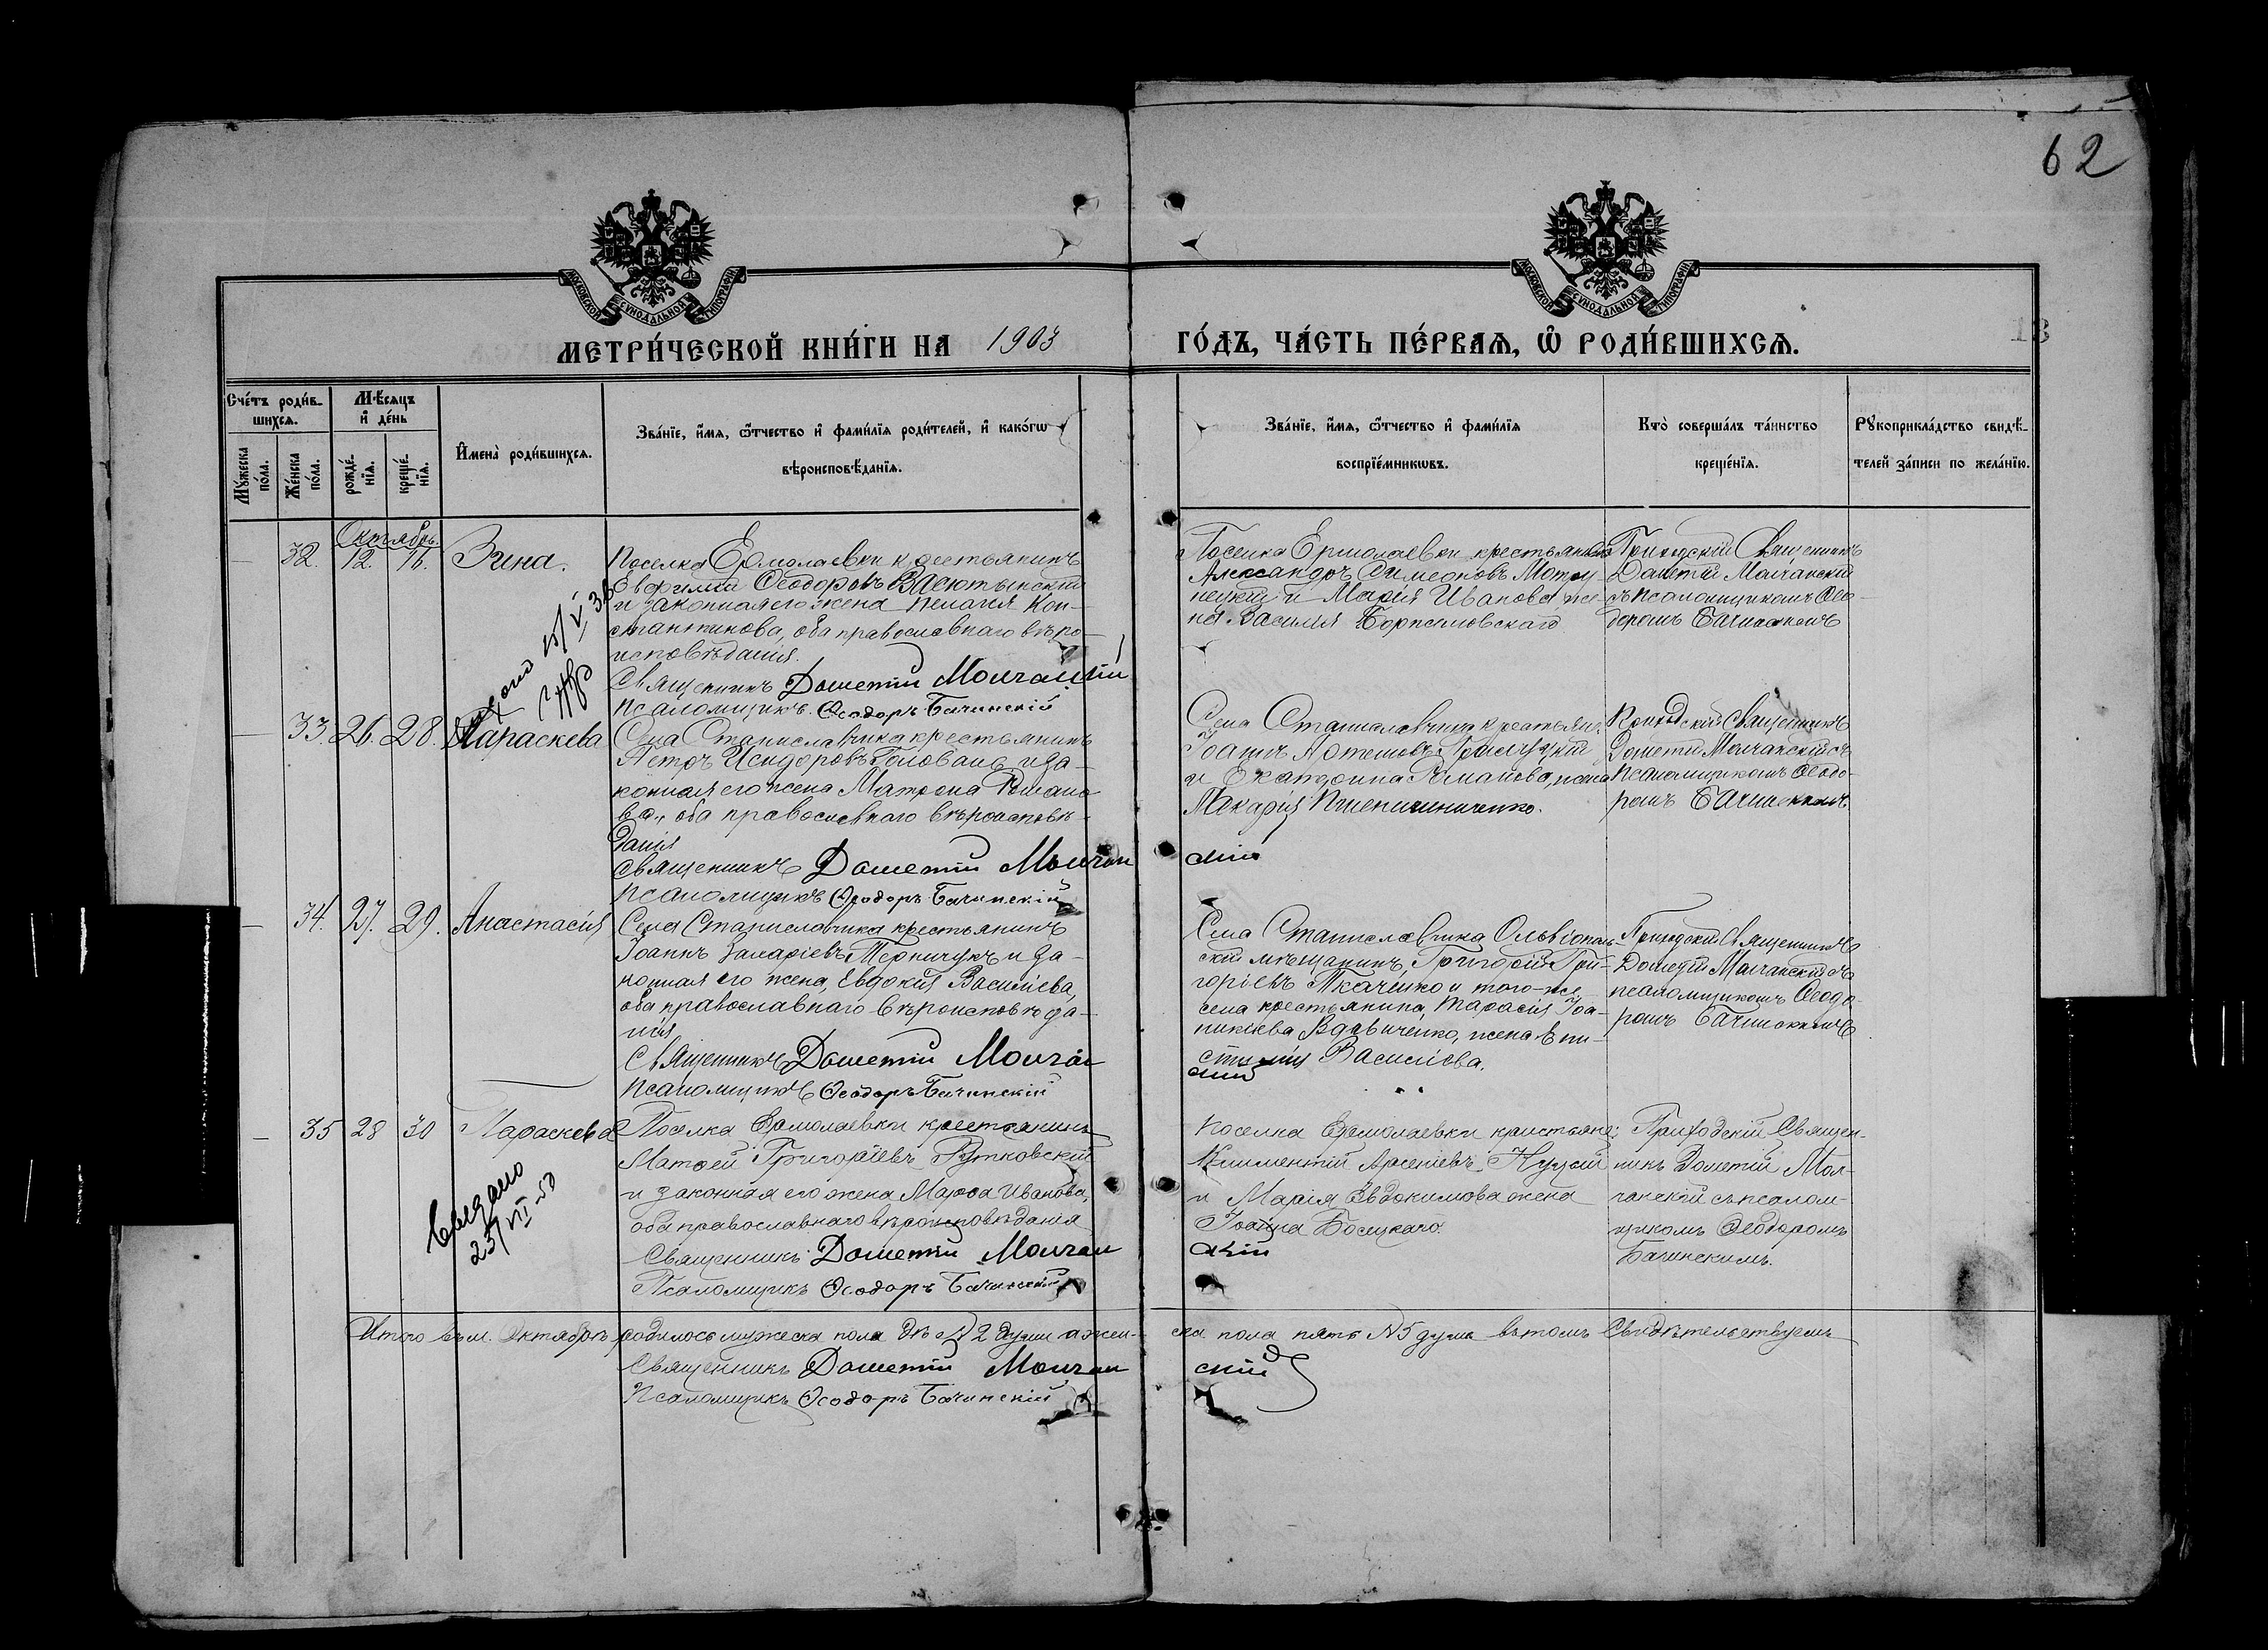 62
МОСКОВСКОЙ СУНОДАЛЬНОЙ ТИПОГРАФІИ
МОСКОВСКОЙ СУНОДАЛЬНОЙ ТИПОГРАФІИ
МЕТРИ́ЧЕСКОЙ КНИ́ГИ НА 1903 ГО́ДЪ, ЧА́СТЬ ПЕ́РВАѦ, Ѡ҆ РОДИ́ВШИХСѦ.
13
Сче́тъ роди́в-
шихсѧ.
Мꙋ́жеска по́ла.
Же́нска по́ла.
Мѣ́сѧцъ
и҆ де́нь
рожде́-
нїѧ.
креще́-
нїѧ.
И҆мена̀ роди́вшихсѧ.
Зва́нїе, и҆́мѧ, ѻ҆́тчество и҆ фами́лїѧ роди́телей, и҆ како́гѡ
вѣроисповѣ́данїѧ.
Зва́нїе, и҆́мѧ, ѻ҆́тчество и҆ фами́лїѧ
воспрїе́мникѡвъ.
Кто̀ соверша́лъ та́инство
креще́нїѧ.
Рꙋкоприкла́дство свидѣ́-
телей за́писи по жела́нїю.
Октябрь.
32. 12. 16. Зина.
Поселка Ермолаевки крестьянинъ
Евфимій Ѳеодоровъ Васютынскій
и законная его жена Пелагія Кон-
стантинова, оба православнаго вѣро-
исповѣданія.
Священникъ Дометій Молчанскій
Псаломщикъ Ѳеодоръ Бачинскій
Поселка Ермолаевки крестьянинъ
Александръ Симеоновъ
и Марія Иванова, же-
на Василія
Приходскій Священникъ
Дометій Молчанскій
съ псаломщикомъ Ѳео-
доромъ Бачинскимъ
33. 26. 28. Параскева
Села Станиславчика крестьянинъ
Петръ Исидоровъ Голованъ и за-
конная его жена Матрона Романо-
ва, оба православнаго вѣроисповѣ-
данія
Священникъ Дометій Молчан
скій
Псаломщикъ Ѳеодоръ Бачинскій
Села Станиславчика крестьяне:
Іоаннъ Артемовъ
и Екатерина Романова, жена
Макарія Пшениченко.
Приходскій Священникъ
Дометій Молчанскій съ
псаломщикомъ Ѳеодо-
ромъ Бачинскимъ.
34. 27. 29. Анастасія
Села Станиславчика крестьянинъ
Іоаннъ Захаріевъ и за-
конная его жена, Евдокія Василіева,
оба православнаго вѣроисповѣда-
нія
Священникъ Дометій Молчан
скій
Псаломщикъ Ѳеодоръ Бачинскій
Села Станиславчика Ольвіополь-
скій мѣщанинъ, Григорій Гри-
горіевъ Ткаченко и того-же
села крестьянина, Тарасія Іоа-
никіева Вдовиченко, жена
Василіева.
Приходскій Священникъ
Дометій Молчанскій съ
псаломщикомъ Ѳеодо-
ромъ Бачинскимъ
35 28 30 Параскева
Выдано
23/VII-50
Поселка Ермолаевки крестьянинъ
Матѳей Григоріевъ Рутковскій
и законная его жена Марѳа Иванова,
оба православнаго вѣроисповѣданія
Священникъ Дометій Молчан
скій
Псаломщикъ Ѳеодоръ Бачинскій
Поселка Ермолаевки крестьяне:
Климентій Арсеніевъ
и Марія Евдокимова жена
Іоанна Босецкаго.
Приходскій Священ-
никъ Дометій Мол-
чанскій съ псалом-
щикомъ Ѳеодоромъ
Бачинскимъ.
Итого въ м. Октябрѣ родилось мужеска пола двѣ 2 души а жен-
ска пола пять №5 душъ въ томъ Свидѣтельствуемъ
Священникъ Дометій Молчан
скій
Псаломщикъ Ѳеодоръ Бачинскій